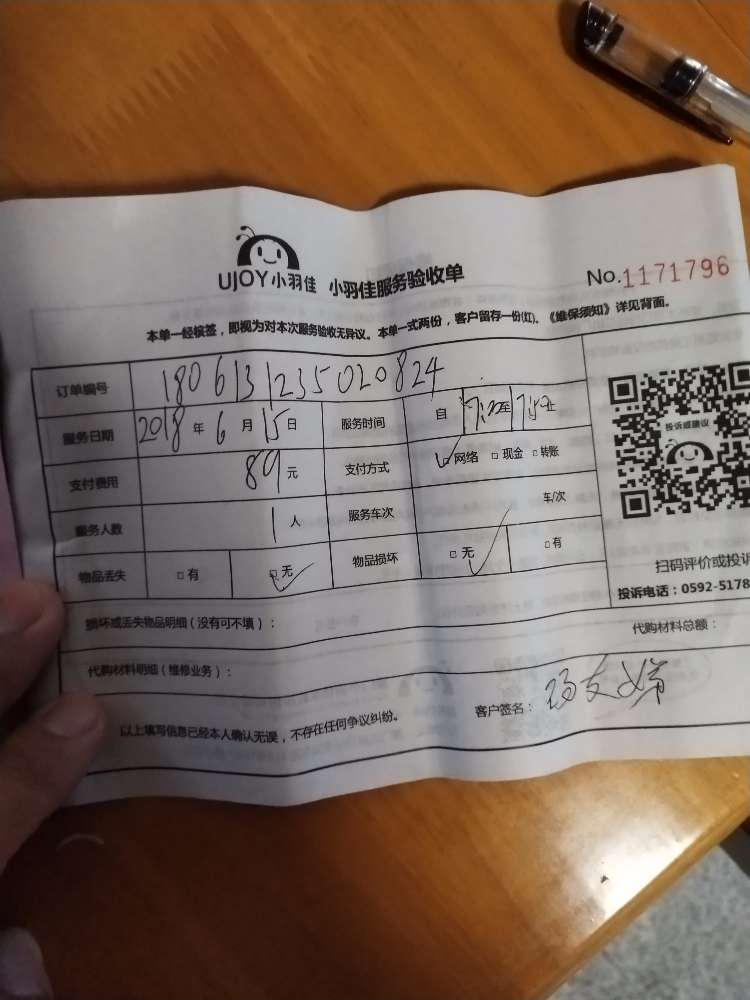 UJOY小羽佳 小羽佳服务验收单 No.1171796
本单一经核签，即视为对本次服务验收无异议。本单一式两份，客户留存一份(红)。《维保须知》详见背面。
订单编号 1806131235020824
服务日期 2018 年 6 月 15 日 服务时间 自 至 止
投诉或建议
支付费用 89 元 支付方式 网络 现金 转账
服务人数 1 人 服务车次 车/次
物品丢失 有 无 物品损坏 无 有
扫码评价或投诉
投诉电话：0592-5178
损坏或丢失物品明细（没有可不填）：
代购材料明细（维修业务）： 代购材料总额：
以上填写信息已经本人确认无误，不存在任何争议纠纷。 客户签名：